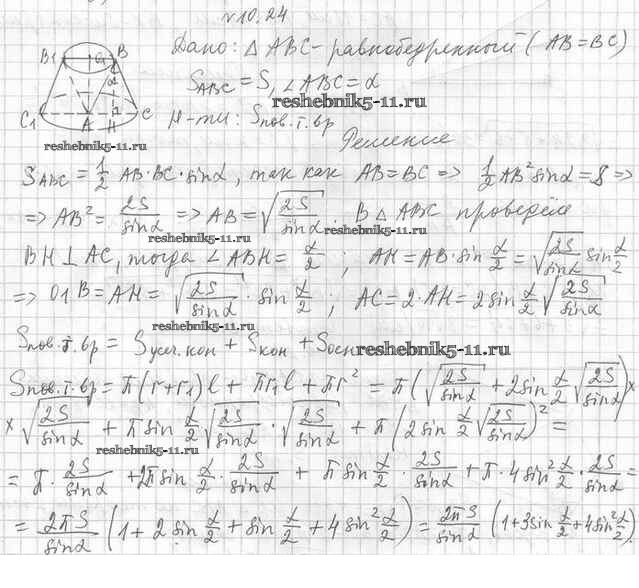 √10.24
Дано: △ ABC - равнобедренный (AB = BC)
S_ABC = S, ∠ABC = α
reshebnik5-11.ru
Н-ти: S пов. т. вр
Решение
B1 O1 B
C1 A H C
α
reshebnik5-11.ru
S_ABC = 1/2 AB · BC · sinα, так как AB = BC => 1/2 AB² sinα = S =>
=> AB² = 2S/sinα => AB = √(2S/sinα). В △ ABC проведём
reshebnik5-11.ru
BH ⊥ AC, тогда ∠ABH = α/2; AH = AB · sin α/2 = √(2S/sinα) sin α/2
=> O1B = AH = √(2S/sinα) · sin α/2; AC = 2 · AH = 2 sin α/2 √(2S/sinα)
reshebnik5-11.ru
S пов. т. вр = S усеч. кон + S кон + S осн
reshebnik5-11.ru
S пов. т. вр = π(r + r1)l + πr1l + πr² = π(√(2S/sinα) + 2sin α/2 √(2S/sinα)) ×
× √(2S/sinα) + π sin α/2 √(2S/sinα) · √(2S/sinα) + π(2 sin α/2 √(2S/sinα))² =
reshebnik5-11.ru
= π · 2S/sinα + 2π sin α/2 · 2S/sinα + π sin α/2 · 2S/sinα + π · 4 sin² α/2 · 2S/sinα =
= 2πS/sinα (1 + 2 sin α/2 + sin α/2 + 4 sin² α/2) = 2πS/sinα (1 + 3sin α/2 + 4sin² α/2).